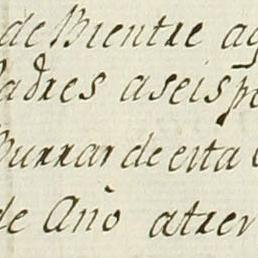 de Bientre
adres aseis
Burrar de esta
de Año atrer